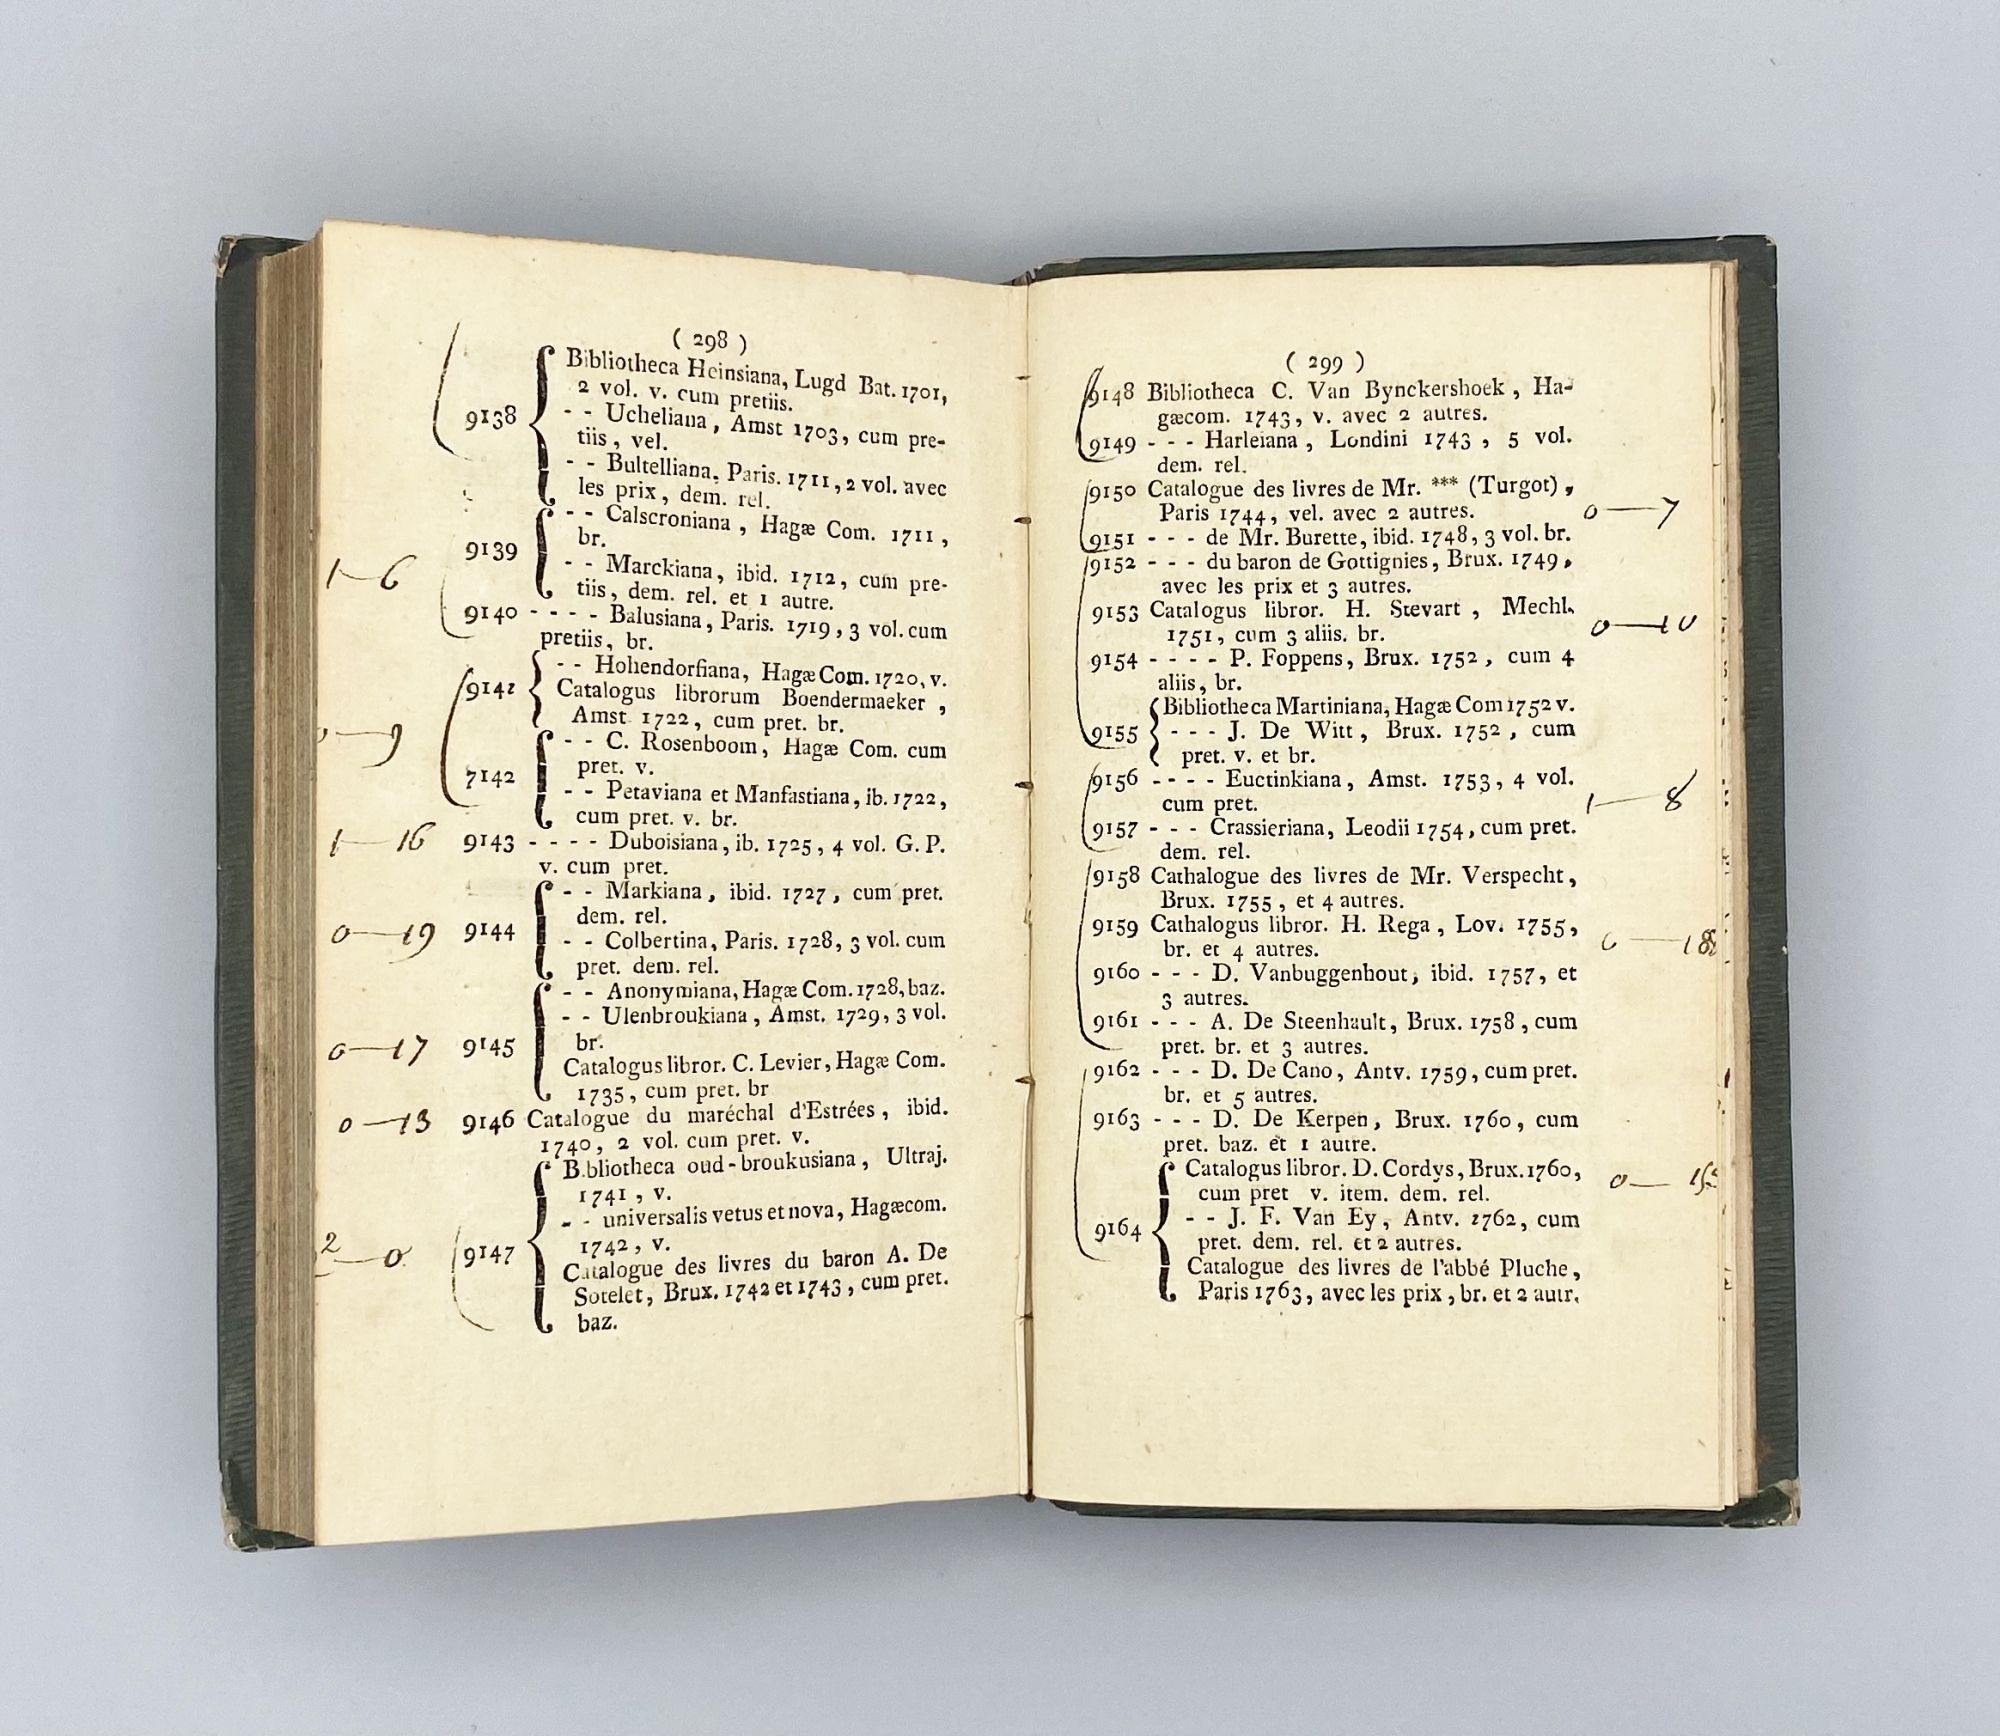 ( 298 )
Bibliotheca Heinsiana, Lugd Bat. 1701,
2 vol. v. cum pretiis.
9138 - - Ucheliana, Amst 1703, cum pre-
tiis, vel.
- - Bultelliana, Paris. 1711, 2 vol. avec
les prix, dem. rel.
- - Calscroniana, Hagæ Com. 1711,
9139 br.
1—6 - - Marckiana, ibid. 1712, cum pre-
tiis, dem. rel. et 1 autre.
9140 - - - - Balusiana, Paris. 1719, 3 vol. cum
pretiis, br.
- - Hohendorfiana, Hagæ Com. 1720, v.
9141 Catalogus librorum Boendermaeker,
Amst 1722, cum pret. br.
—9 - - C. Rosenboom, Hagæ Com. cum
7142 pret. v.
- - Petaviana et Manfastiana, ib. 1722,
cum pret. v. br.
1—16 9143 - - - - Duboisiana, ib. 1725, 4 vol. G. P.
v. cum pret.
- - Markiana, ibid. 1727, cum pret.
dem. rel.
0—19 9144 - - Colbertina, Paris. 1728, 3 vol. cum
pret. dem. rel.
- - Anonymiana, Hagæ Com. 1728, baz.
- - Ulenbroukiana, Amst. 1729, 3 vol.
0—17 9145 br.
Catalogus libror. C. Levier, Hagæ Com.
1735, cum pret. br
0—13 9146 Catalogue du maréchal d'Estrées, ibid.
1740, 2 vol. cum pret. v.
B.bliotheca oud-broukusiana, Ultraj.
1741, v.
- - universalis vetus et nova, Hagæcom.
2—0 9147 1742, v.
Catalogue des livres du baron A. De
Sotelet, Brux. 1742 et 1743, cum pret.
baz.
( 299 )
9148 Bibliotheca C. Van Bynckershoek, Ha-
gæcom. 1743, v. avec 2 autres.
9149 - - - Harleiana, Londini 1743, 5 vol.
dem. rel.
9150 Catalogue des livres de Mr. *** (Turgot),
Paris 1744, vel. avec 2 autres. 0—7
9151 - - - de Mr. Burette, ibid. 1748, 3 vol. br.
9152 - - - du baron de Gottignies, Brux. 1749,
avec les prix et 3 autres.
9153 Catalogus libror. H. Stevart, Mechl.
1751, cum 3 aliis. br. 0—10
9154 - - - - P. Foppens, Brux. 1752, cum 4
aliis, br.
Bibliotheca Martiniana, Hagæ Com 1752 v.
9155 - - - J. De Witt, Brux. 1752, cum
pret. v. et br.
9156 - - - - Euctinkiana, Amst. 1753, 4 vol.
cum pret. 1—8
9157 - - - Crassieriana, Leodii 1754, cum pret.
dem. rel.
9158 Cathalogue des livres de Mr. Verspecht,
Brux. 1755, et 4 autres.
9159 Cathalogus libror. H. Rega, Lov. 1755,
br. et 4 autres. 0—18
9160 - - - D. Vanbuggenhout, ibid. 1757, et
3 autres.
9161 - - - A. De Steenhault, Brux. 1758, cum
pret. br. et 3 autres.
9162 - - - D. De Cano, Antv. 1759, cum pret.
br. et 5 autres.
9163 - - - D. De Kerpen, Brux. 1760, cum
pret. baz. et 1 autre.
Catalogus libror. D. Cordys, Brux. 1760,
cum pret v. item. dem. rel.
9164 - - J. F. Van Ey, Antv. 1762, cum
pret. dem. rel. et 2 autres.
Catalogue des livres de l'abbé Pluche,
Paris 1763, avec les prix, br. et 2 autr.